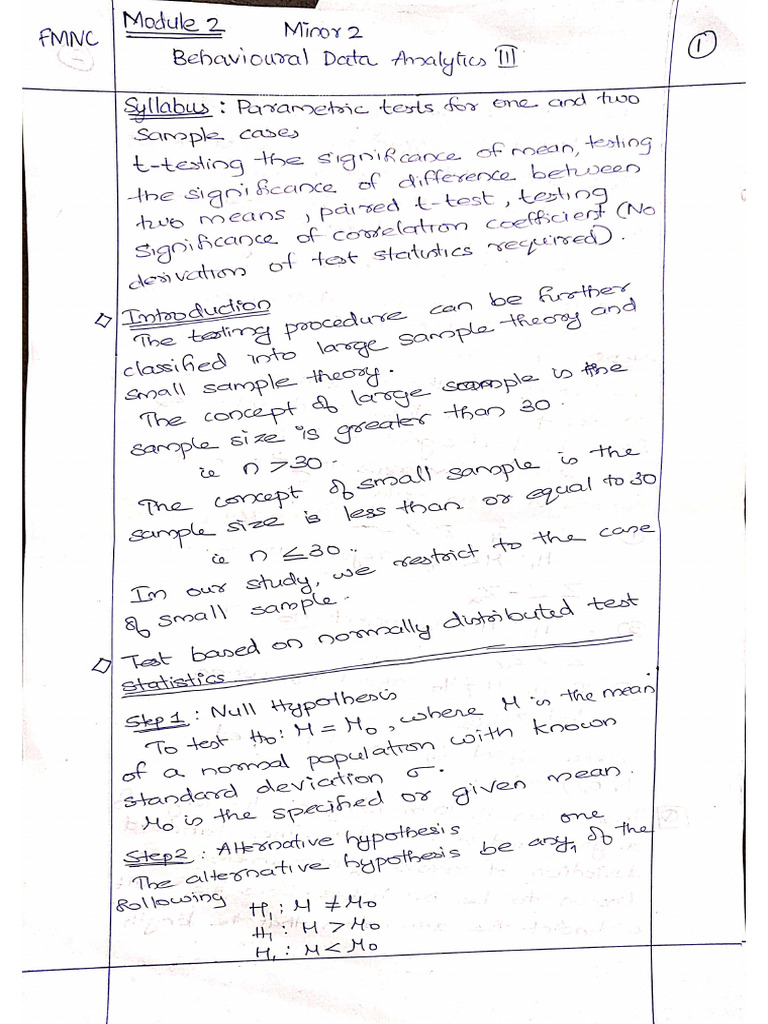 FMNC
Module 2 Minor 2
Behavioural Data Analytics III
1
Syllabus : Parametric tests for one and two
sample cases
t-testing the significance of mean, testing
the significance of difference between
two means, paired t-test, testing
significance of correlation coefficient (No
derivation of test statistics required).
Introduction
The testing procedure can be further
classified into large sample theory and
small sample theory.
The concept of large sample is the
sample size is greater than 30.
ie n > 30.
The concept of small sample is the
sample size is less than or equal to 30
ie n ≤ 30.
In our study, we restrict to the case
of small sample.
Test based on normally distributed test
statistics
Step 1 : Null Hypothesis
To test H₀: M = M₀, where M is the mean
of a normal population with known
standard deviation σ.
M₀ is the specified or given mean.
Step2 : Alternative hypothesis
The alternative hypothesis be any one of the
following
H₁ : M ≠ M₀
H₁ : M > M₀
H₁ : M < M₀